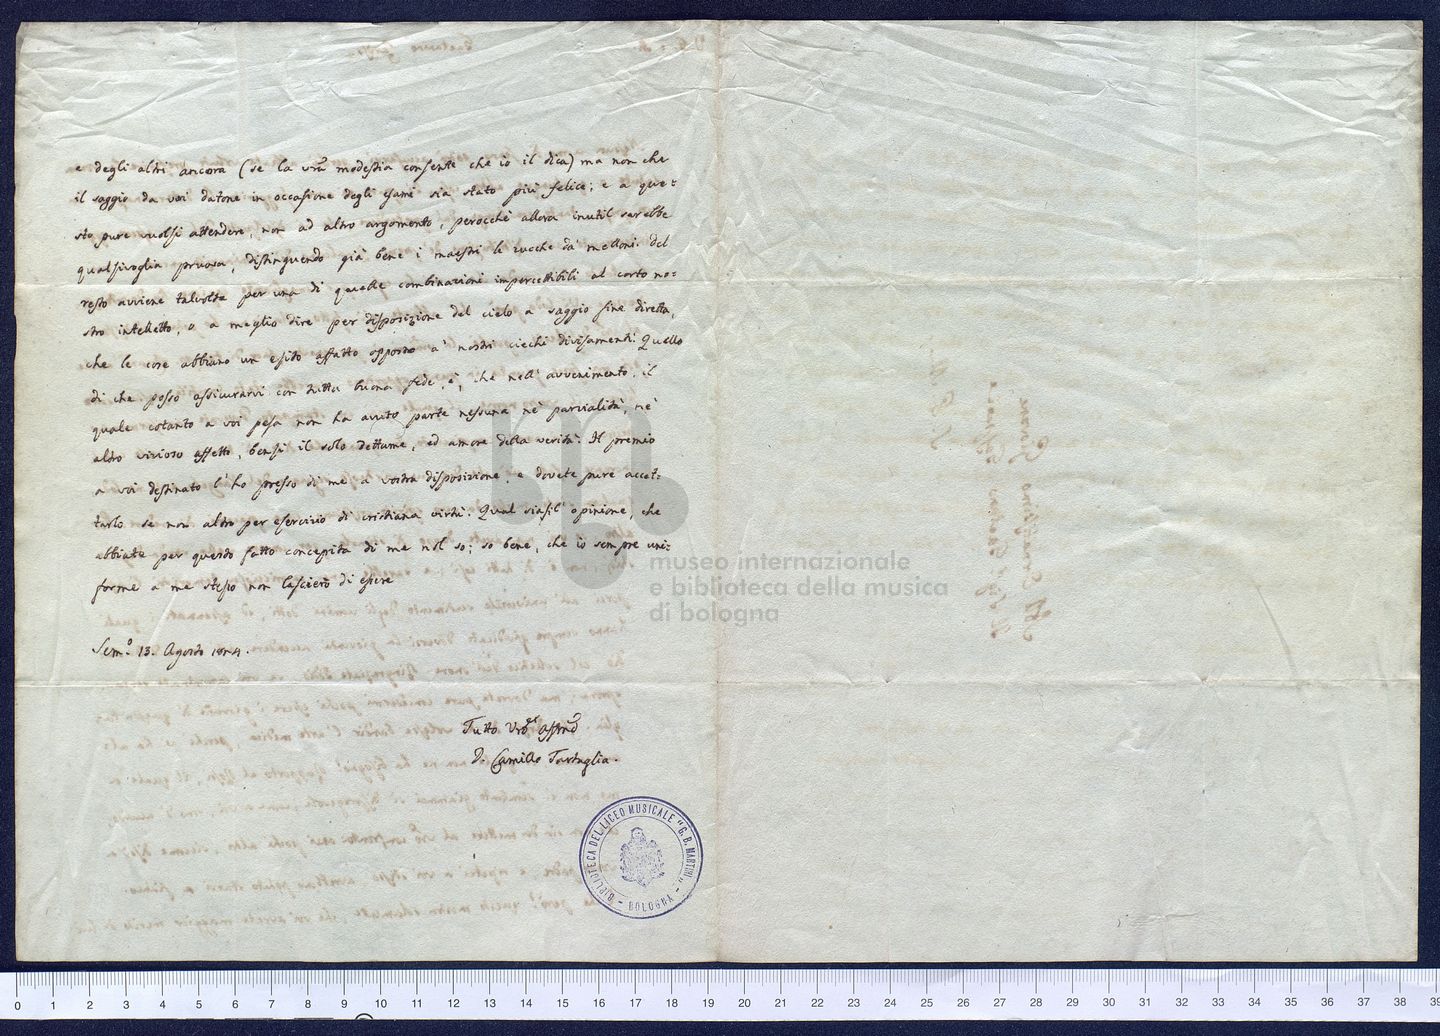 e degli altri ancora (se la vra modestia consente che io il dica) ma non che
il saggio da voi datone in occasione degli esami sia stato più felice; e a que=
sto pure vuolsi attendere, non ad altro argomento, perocchè allora inutil sarebbe
qualsivoglia pruova, distinguendo già bene i maestri le zucche da' melloni. Del
resto avviene talvolta per una di quelle combinazioni impercettibili al corto no=
stro intelletto, o a meglio dire per disposizione del cielo a saggio fine diretta,
che le cose abbiano un esito affatto opposto a' nostri ciechi divisamenti. Quello
di che posso assicurarvi con tutta buona fede, è, che nell'avvenimento, il
quale cotanto a voi pesa non ha avuto parte nessuna nè parzialità, nè
altro vizioso affetto, bensì il solo dettame, ed amore della verità. Il premio
a voi destinato l'ho presso di me a vostra disposizione, e dovete pure accet=
tarlo se non altro per esercizio di cristiana virtù. Qual siasi l'opinione, che
abbiate per questo fatto concepita di me nol so; so bene, che io sempre uni=
forme a me stesso non lascierò di essere
Sem.º 13. Agosto 1824.
Tutto Vro affmo
D. Camillo Tartaglia.
BIBLIOTECA DEL LICEO MUSICALE "G. B. MARTINI" - BOLOGNA -
museo internazionale
e biblioteca della musica
di bologna
0 1 2 3 4 5 6 7 8 9 10 11 12 13 14 15 16 17 18 19 20 21 22 23 24 25 26 27 28 29 30 31 32 33 34 35 36 37 38 39